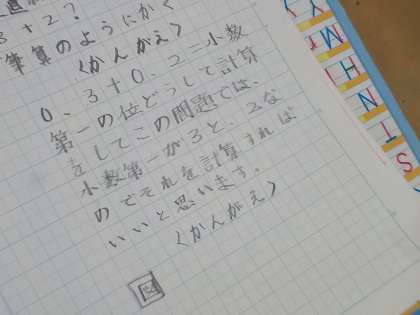 3+2?
筆算のようにかく
〈かんがえ〉
0、3+0、2=小数
第一の位どうして計算
をしてこの問題では、
小数第一が3と、2な
のでそれを計算すれば
いいと思います。
〈かんがえ〉
図
Y
M
H
I
T
N
S